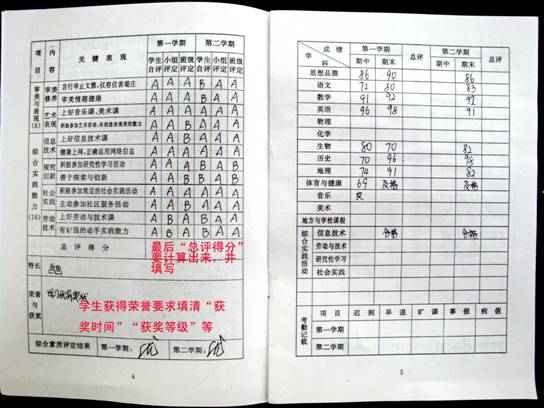 项目 内容 关键表现 第一学期 第二学期
学生自评 小组评定 班级评定 学生自评 小组评定 班级评定
审美与表现(8) 审美修养 言行举止文雅,仪容仪表端庄 A A A B A A
审美情趣健康 A A A A A A
艺术表现 上好音乐课、美术课 A A A A A A
积极参加艺术活动,有创造表现美的能力 A A A B A A
综合实践能力(16) 信息技术 上好信息技术课 A A A B A A
健康上网,正确运用网络信息 A A A A A A
探究创新 积极参加研究性学习活动 A A A B A B
善于探索与创新 A A B B A B
社会实践 积极参加规定的社会实践活动 A A A A A A
主动参加社区服务活动 A A A B A A
劳动技术 上好劳动与技术课 A B A B A A
有较强的动手实践能力 A B A B A A
总评得分
最后“总评得分”
要计算出来,并
填写
特长
荣誉与获奖
学生获得荣誉要求填清“获
奖时间”“获奖等级”等
综合素质评定结果 第一学期: 优 第二学期: 优
4
成绩 学科 第一学期 总评 第二学期 总评
期中 期末 期中 期末
思想品德 86 90 86
语文 72 80 83
数学 91 92 92
英语 96 98 91
物理
化学
生物 80 70 82
历史 70 96 98
地理 74 91 82
体育与健康 69 及格 及格
音乐 良
美术
地方与学校课程
综合实践活动 信息技术 合格 合格
劳动与技术
研究性学习
社会实践
考勤记载 项目 迟到 早退 旷课 事假 病假
第一学期
第二学期
5